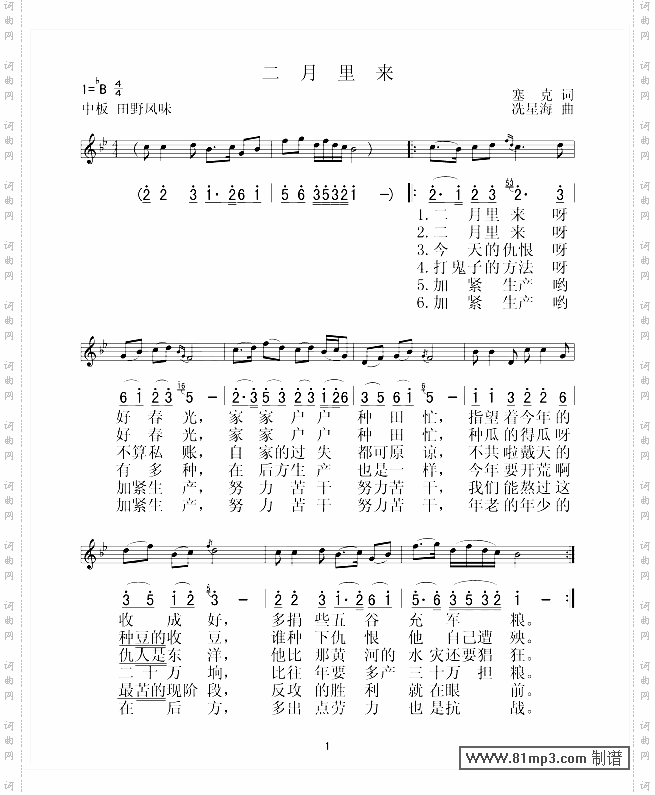 二 月 里 来
1=♭B 4/4
塞 克 词
中板 田野风味
冼星海 曲
(2̇ 2̇ 3̇ 1̇·2̇6 1̇ | 5 6 3̇5̇3̇2̇1̇ —) |: 2̇· 1̇ 2̇ 3̇ 2̇· 3̇
1.二 月里 来 呀
2.二 月里 来 呀
3.今 天的仇恨 呀
4.打鬼子的方法 呀
5.加 紧 生产 哟
6.加 紧 生产 哟
好 春 光, 家 家 户 户 种 田 忙, 指望着今年的
好 春 光, 家 家 户 户 种 田 忙, 种瓜的得瓜呀
不算私 账, 自 家的过 失 都可原 谅, 不共戴天的
有 多 种, 在 后方生 产 也是一 样, 今年要开荒啊
加紧生 产, 努 力 苦 干 努力苦 干, 我们能熬过这
加紧生 产, 努 力 苦 干 努力苦 干, 年老的年少的
收 成 好, 多捐 些五 谷 充 军 粮。
种豆的收 豆, 谁种 下仇 恨 他 自己遭 殃。
仇人是东 洋, 他比 那黄 河的 水灾还要猖 狂。
二 十 万 垧, 比往 年要 多产 三十万 担粮。
最苦的现阶 段, 反攻 的胜 利 就在眼 前。
在 后 方, 多出 点劳 力 也是抗 战。
1
www.81mp3.com 制谱
词曲网
词曲网
词曲网
词曲网
词曲网
词曲网
词曲网
词曲网
词曲网
词曲网